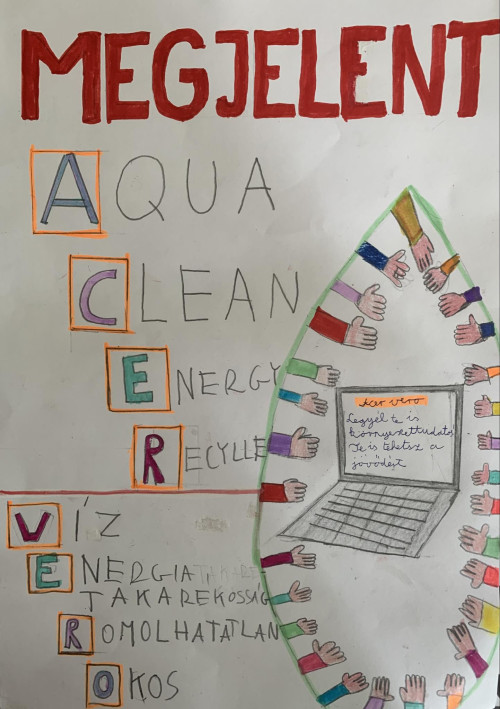 MEGJELENT
AQUA
CLEAN
ENERGY
RECYLLE
Acer vero
Legyél te is
környezettudatos
Te is tehetsz a
jövődért
VÍZ
ENERGIA
TAKARÉKOSSÁG
ROMOLHATATLAN
OKOS